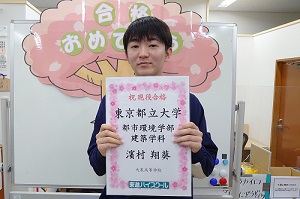 合格
おめでとう
祝現役合格
東京都立大学
都市環境学部
建築学科
濱村 翔葵
東進ハイスクール